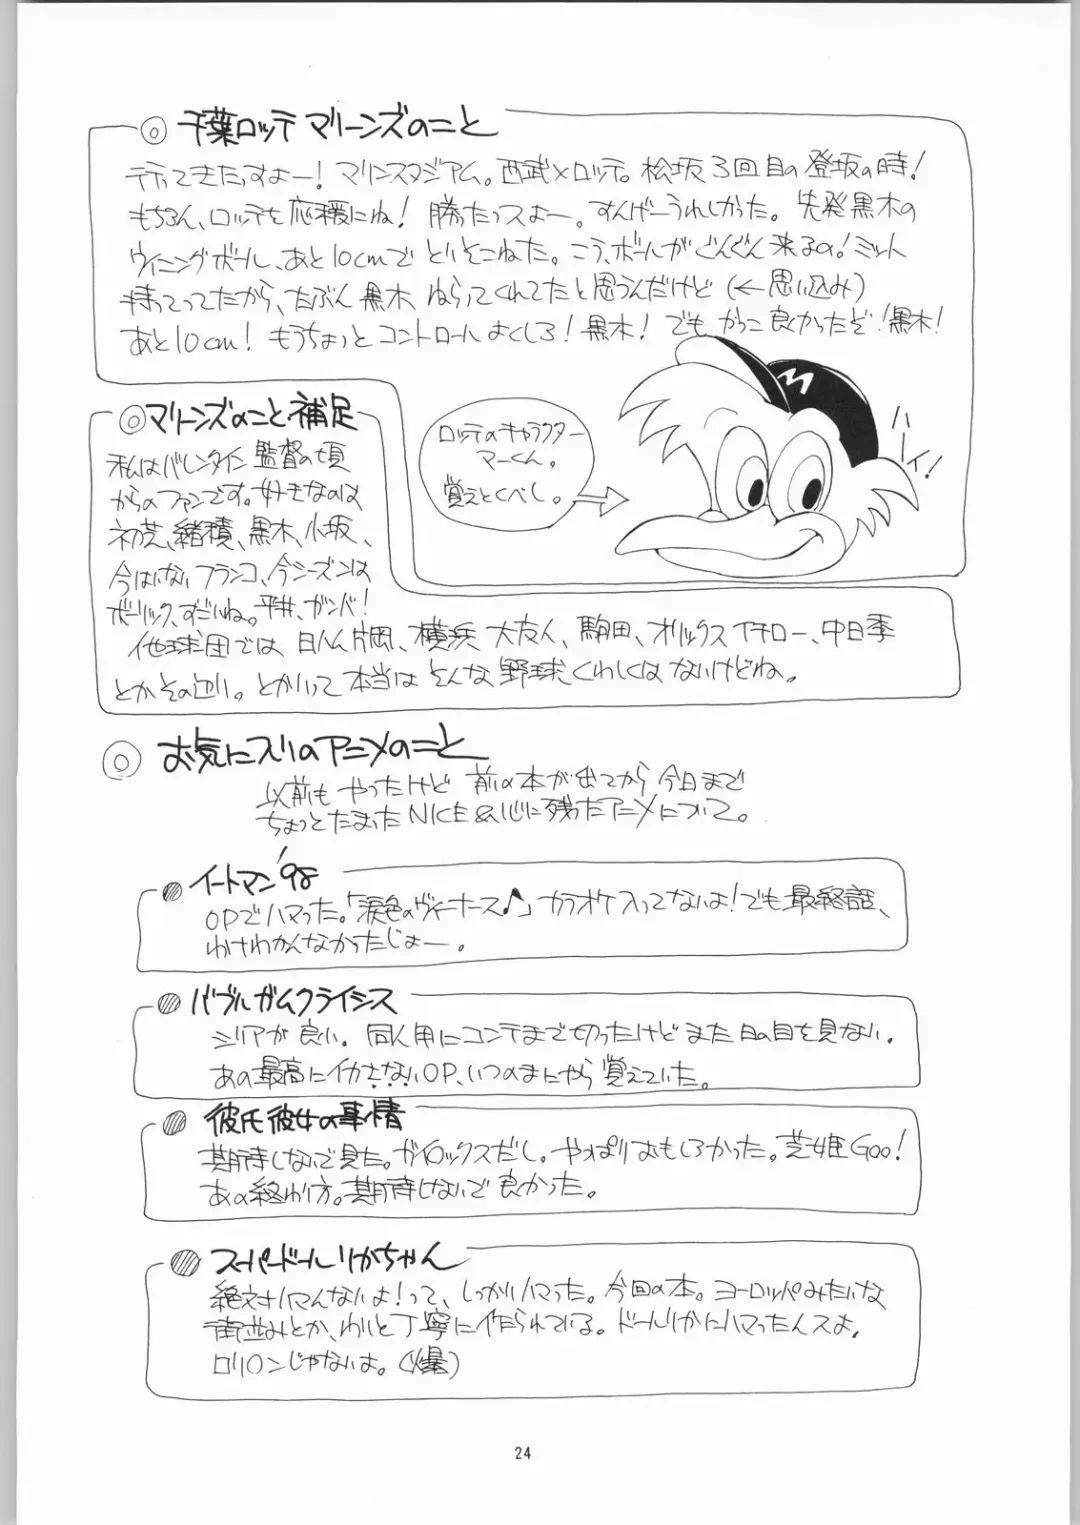 ◎ 千葉ロッテマリーンズのこと
行ってきたっすよー！マリンスタジアム。西武×ロッテ。松坂3回目の登坂の時！
もちろん、ロッテを応援にね！勝たっスよー。すんげーうれしかった。先発黒木の
ウイニングボール、あと10cmでとりそこねた。こう、ボールがぐんぐん来るの！ミット
持ってってたから、たぶん黒木ねらってくれてたと思うんだけど（←思い込み）
あと10cm！もうちょっとコントロールよくしろ！黒木！でもかっこ良かったぞ！黒木！
ロッテのキャラクター
マーくん。
覚えとくべし。
ハーイ！
◎マリーンズのこと補足
私はバレンタイン監督の頃
からのファンです。好きなのは
初芝、緒積、黒木、小坂、
今はいないフランコ、今シーズンは
ボーリック、すごいね。平井、ガンバ！
他球団では日ハム片岡、横浜大友人、駒田、オリックスイチロー、中日李
とかその辺り。とかいって本当はそんな野球くわしくはないけどね。
◎ お気に入りのアニメのこと
以前もやったけど前の本が出てから今日まで
ちょっとたまったNICE&心に残ったアニメについて。
イートマン'98
OPでハマった。「涙色のヴィーナス♪」カラオケ入ってないよ！でも最終話、
わけわかんなかったじょー。
バブルガムクライシス
シリアが良い。同人用にコンテまで切ったけどまだ日の目を見ない。
あの最高にイカさないOP、いつのまにやら覚えていた。
彼氏彼女の事情
期待しないで見た。ガイロックスだし。やっぱりおもしろかった。芝姫Goo！
あの終わり方。期待しないで良かった。
スーパードールリカちゃん
絶対ハマんないよ！って、しっかりハマった。今回の本。ヨーロッパみたいな
街並みとか、わりと丁寧に作られている。ドールリカにハマったんスよ。
ロリ○ンじゃないよ。（爆）
24